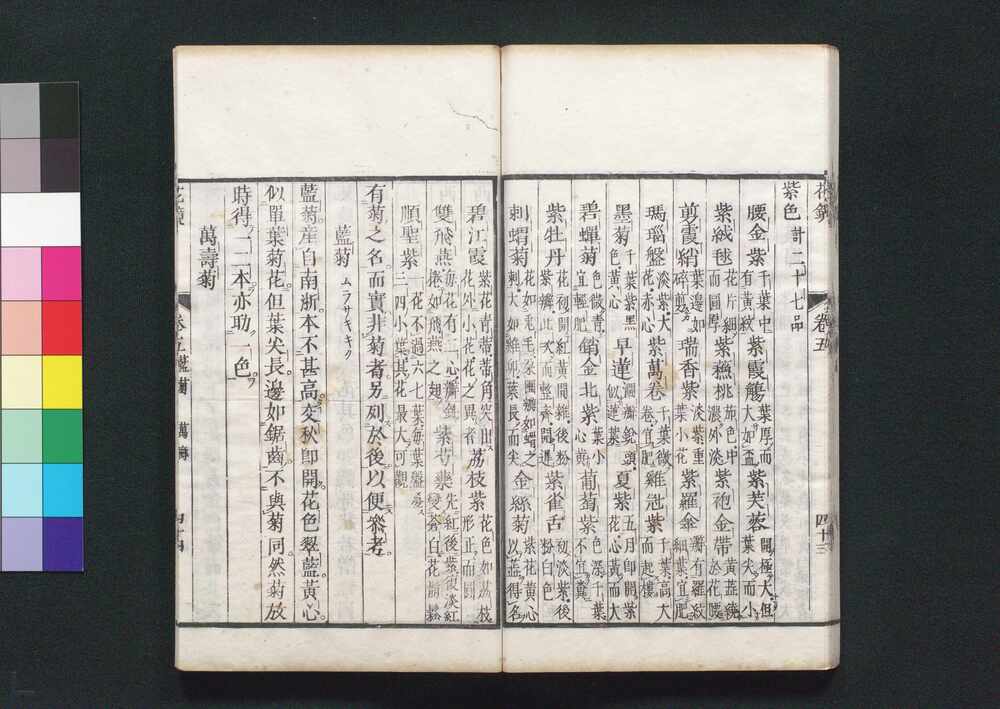 花鏡
卷五
四十三
紫色 計二十七品
腰金紫 千葉中有黃紋 紫霞觴 葉厚而大如盃 紫芙蓉 開極大但葉尖而小
紫絨毬 花片細而圓厚 紫穠桃 施色中濃外淡 紫袍金帶 黃蕋繞於花腰
剪霞綃 葉邊如碎剪 瑞香紫 淡紫重葉小花 紫羅傘 瓣有羅紋細葉宜肥
瑪瑙盤 淡紫大花赤心 紫萬卷 千葉微卷宜肥 雞冠紫 千葉高大而起樓
墨菊 千葉紫黑色黃心 早蓮 瀾瓣銳頭似蓮葉 夏紫 五月即開紫花心黃而大
碧蟬菊 色微青宜輕肥 銷金北紫 千葉小心黃 葡萄紫 色深千葉不宜糞
紫牡丹 花初開紅黃間雜後粉紫瓣比次而整齊開遲 紫雀舌 初淡紫後粉白色
刺蝟菊 花如兎毛朶團瓣如蝟之刺大如雞卵葉長而尖 金絲菊 紫花黃心以蕋得名
碧江霞 紫花青蒂蒂角突出花外小花花之異者 荔枝紫 花色如荔枝形正而圓
雙飛燕 每花有二心瓣斜捲如飛燕之翅 紫芍藥 先紅後紫復淡紅變蒼白花詣鬆
順聖紫 一花不過六七葉每葉盤疊三四小葉其花最大可觀
有菊之名而實非菊者另列於後以便叅考
藍菊 ムラサキキク
藍菊產自南浙本不甚高交秋即開花色翠藍黃心
似單葉菊花但葉尖長邊如鋸齒不與菊同然菊放
時得一二本亦助一色
萬壽菊
花鏡
卷五 藍菊 萬壽
四十四